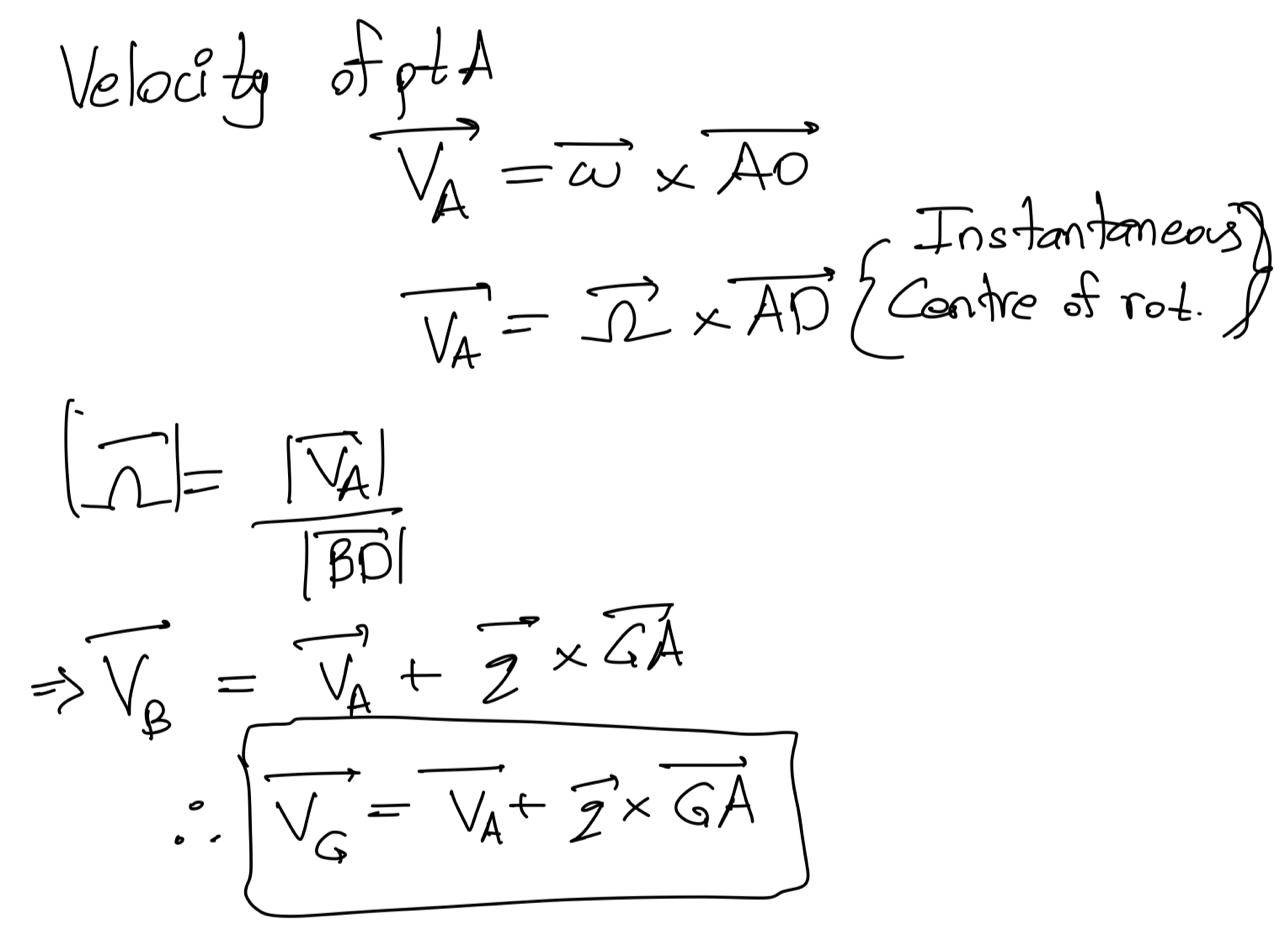 Velocity of pt A
$\overrightarrow{V_A} = \overrightarrow{\omega} \times \overrightarrow{AO}$
$\overrightarrow{V_A} = \overrightarrow{\Omega} \times \overrightarrow{AD}$ { Instantaneous
Centre of rot. }
$|\overrightarrow{\Omega}| = \frac{|\overrightarrow{V_A}|}{|\overrightarrow{BD}|}$
$\Rightarrow \overrightarrow{V_B} = \overrightarrow{V_A} + \overrightarrow{2} \times \overrightarrow{GA}$
$\therefore \overrightarrow{V_G} = \overrightarrow{V_A} + \overrightarrow{2} \times \overrightarrow{GA}$